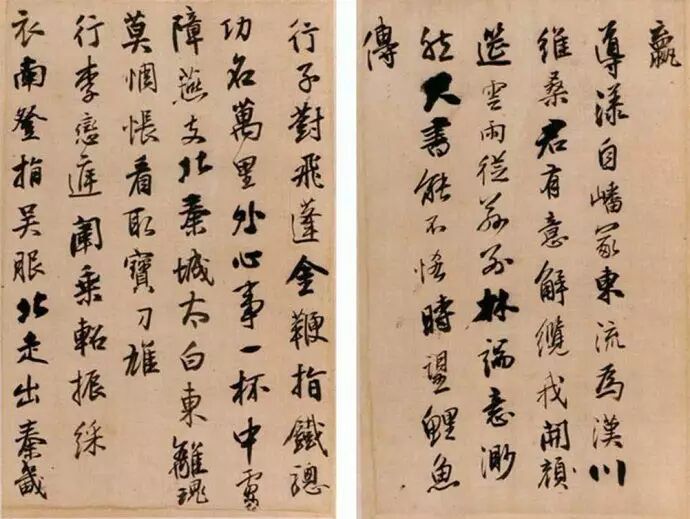 導漾自嶓冢東流為漢川
維桑君有意解纜我開顏
筵雲雨從茲別林端意渺
然尺書能不恡時望鯉魚
傳
行子對飛蓬金鞭指鐵驄
功名萬里外心事一杯中虜
障燕支北秦城太白東離魂
莫惆悵看取寶刀雄
行李戀庭闈乘軺振綵
衣南登指吳服北走出秦畿